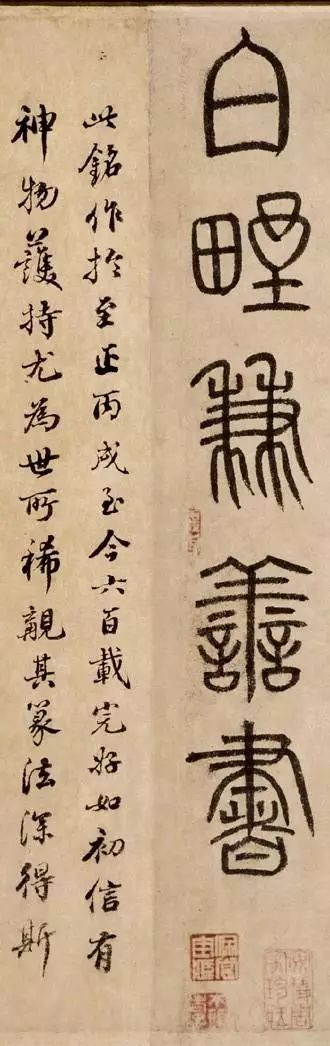 白野兼善書
此銘作於至正丙戌至今六百載完好如初信有
神物護持尤為世所稀覯其篆法深得斯